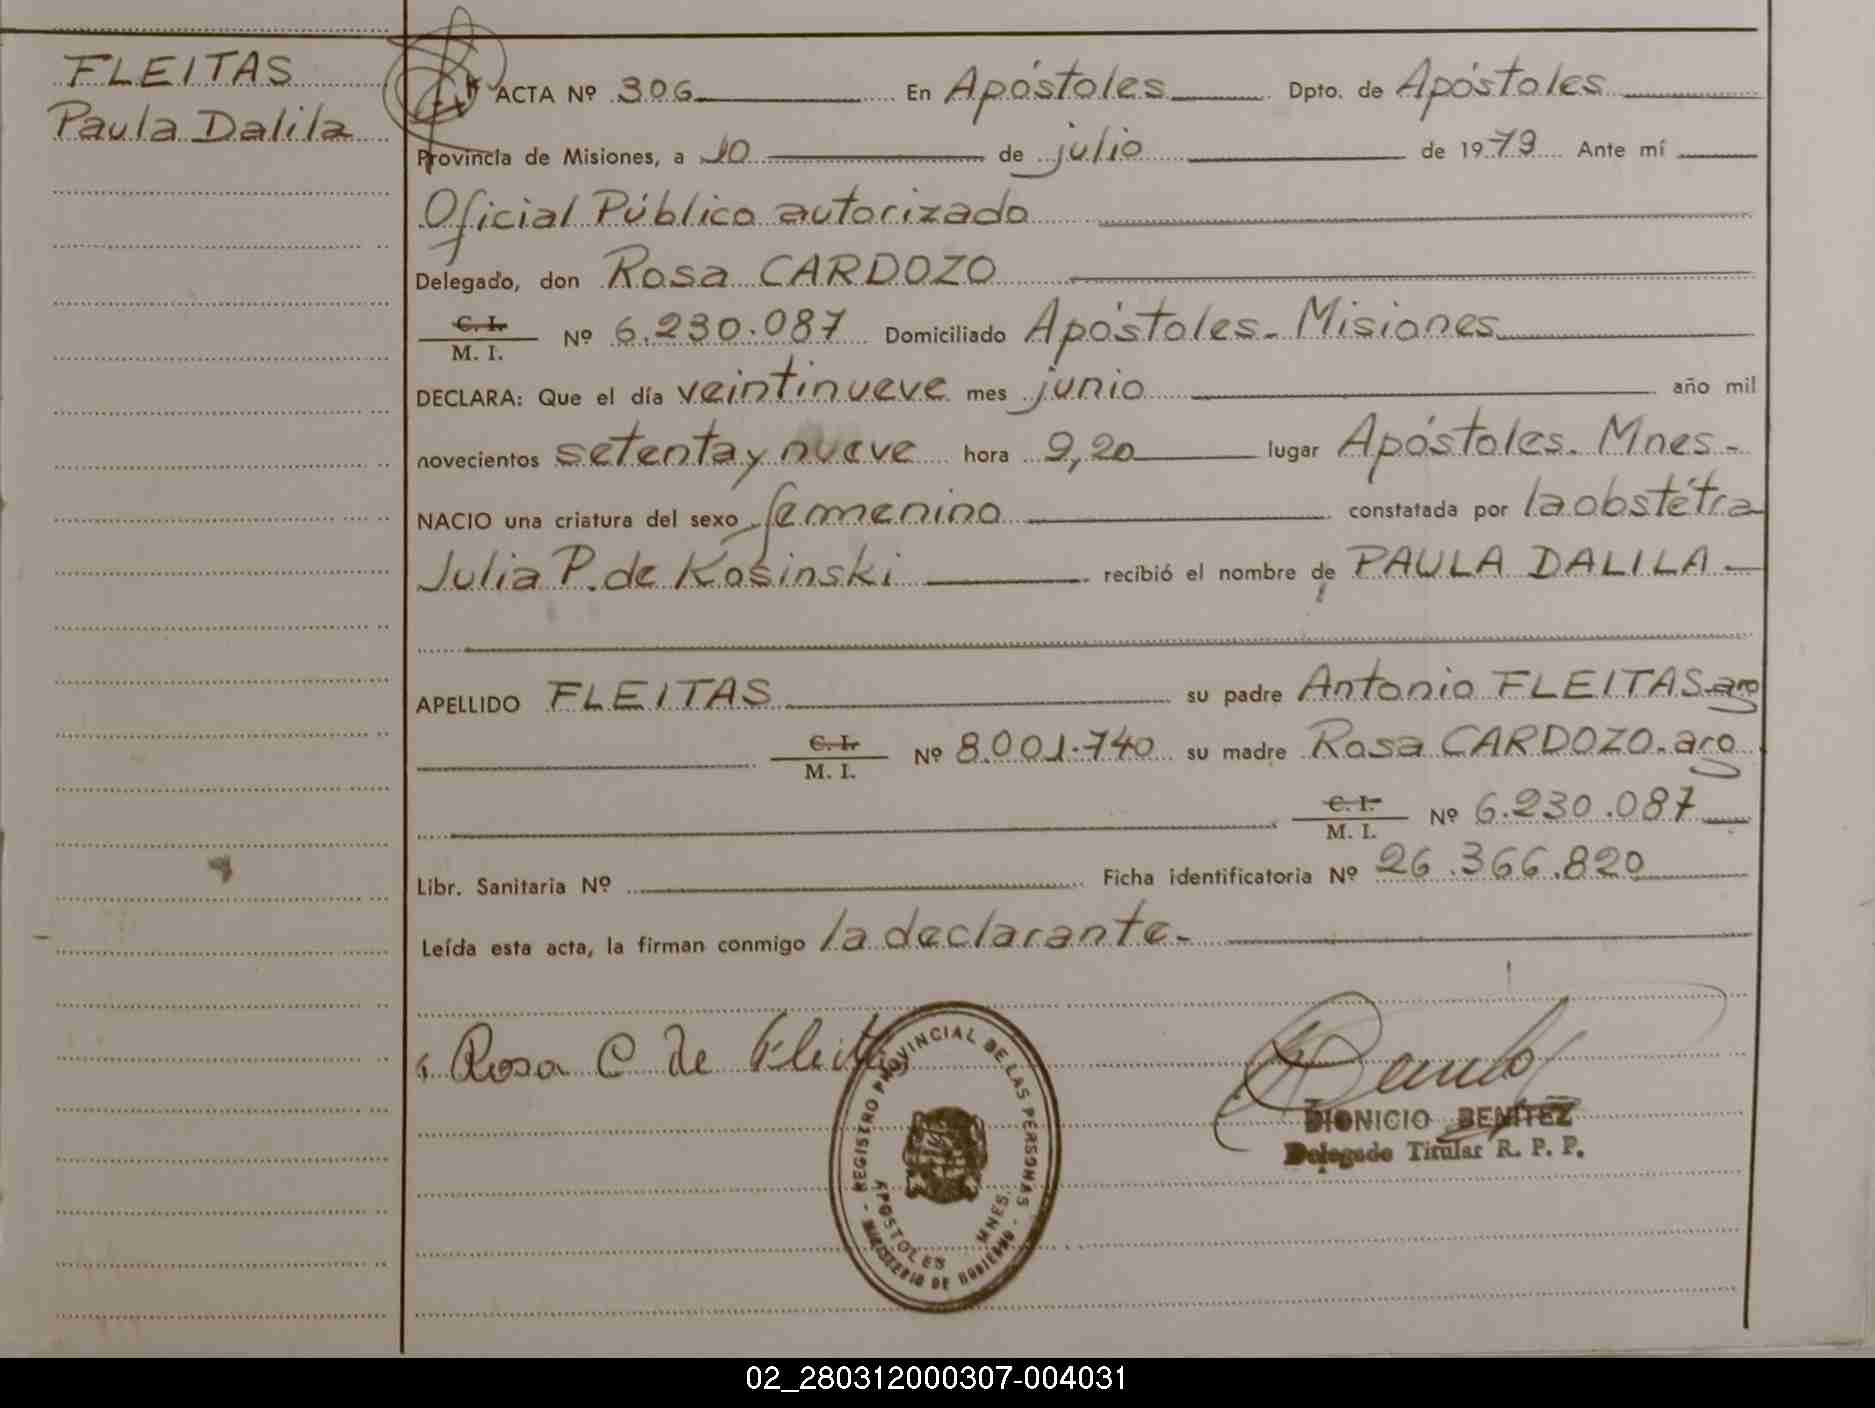 FLEITAS
Paula Dalila
ACTA Nº 306 En Apóstoles Dpto. de Apóstoles
Provincia de Misiones, a 10 de julio de 1979 Ante mí
Oficial Público autorizado
Delegado, don Rosa CARDOZO
C. I. M. I. Nº 6.230.087 Domiciliado Apóstoles. Misiones
DECLARA: Que el día veintinueve mes junio año mil
novecientos setenta y nueve hora 9,20 lugar Apóstoles. Mnes-
NACIO una criatura del sexo femenino constatada por la obstétra
Julia P. de Kosinski recibió el nombre de PAULA DALILA
APELLIDO FLEITAS su padre Antonio FLEITAS-aro
C. I. M. I. Nº 8.001.740 su madre Rosa CARDOZO-aro
C. I. M. I. Nº 6.230.087
Libr. Sanitaria Nº Ficha identificatoria Nº 26.366.820
Leída esta acta, la firman conmigo la declarante-
Rosa C de Fleitas
REGISTRO PROVINCIAL DE LAS PERSONAS
APOSTOLES MNES.
MINISTERIO DE GOBIERNO
DIONICIO BENITEZ
Delegado Titular R. P. P.
02_280312000307-004031